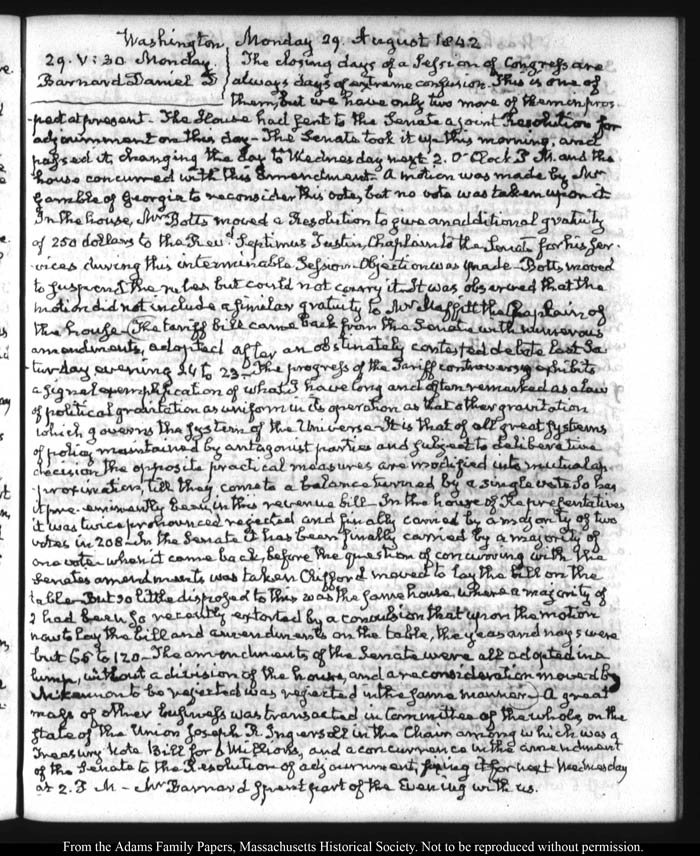 Washington, Monday 29. August 1842
29. V:30 Monday. The closing days of a Session of Congress are
Barnard Daniel D always days of extreme confusion. This is one of
them, but we have only two more of them in pros-
pect at present. The House had sent to the Senate a joint Resolution for
adjournment on this day. The Senate took it up this morning, and
passed it, changing the day to Wednesday next 2. O'Clock P. M. and the
house concurred with this amendment. A motion was made by Mr
Gamble of Georgia to reconsider this vote, but no vote was taken upon it
In the house, Mr Botts moved a Resolution to give an additional gratuity
of 250 dollars to the Revd. Septimus Tustin, Chaplain to the Senate for his ser-
vices during this interminable Session. Objection was made. Botts moved
to suspend the rules but could not carry it. It was observed that the
motion did not include a similar gratuity to Mr Maffitt the Chaplain of
the house. The tariff bill came back from the Senate with numerous
amendments, adopted after an obstinately contested debate last Sa-
turday evening 24 to 23. The progress of the Tariff controversy exhibits
a signal exemplification of what I have long and often remarked as a law
of political gravitation as uniform in its operation as that other gravitation
which governs the system of the Universe. It is that of all great systems
of policy maintained by antagonist parties and subject to deliberative
decision, the opposite practical measures are modified into mutual ap-
proximation, till they come to a balance turned by a single vote. So has
it pre-eminently been in this revenue bill. In the house of Representatives
it was twice pronounced rejected and finally carried by a majority of two
votes in 208. In the Senate it has been finally carried by a majority of
one vote. when it came back, before the question of concurring with the
Senates amendments was taken Clifford moved to lay the bill on the
table. But so little disposed to this was the same house, where a majority of
2 had been so recently extorted by a convulsion that upon the motion
now to lay the bill and amendments on the table, the yeas and nays were
but 66 to 120. The amendments of the Senate were all adopted in a
lump, without a division of the house, and a reconsideration moved by
McKennon to be rejected was rejected in the same manner. A great
mass of other business was transacted in Committee of the whole, on the
state of the Union Joseph R. Ingersoll in the Chair among which was a
Treasury Note Bill for 6 Millions, and a concurrence in the amendment
of the Senate to the Resolution of adjournment, fixing it for next Wednesday
at 2. P M - Mr Barnard spent part of the Evening with us.
From the Adams Family Papers, Massachusetts Historical Society. Not to be reproduced without permission.